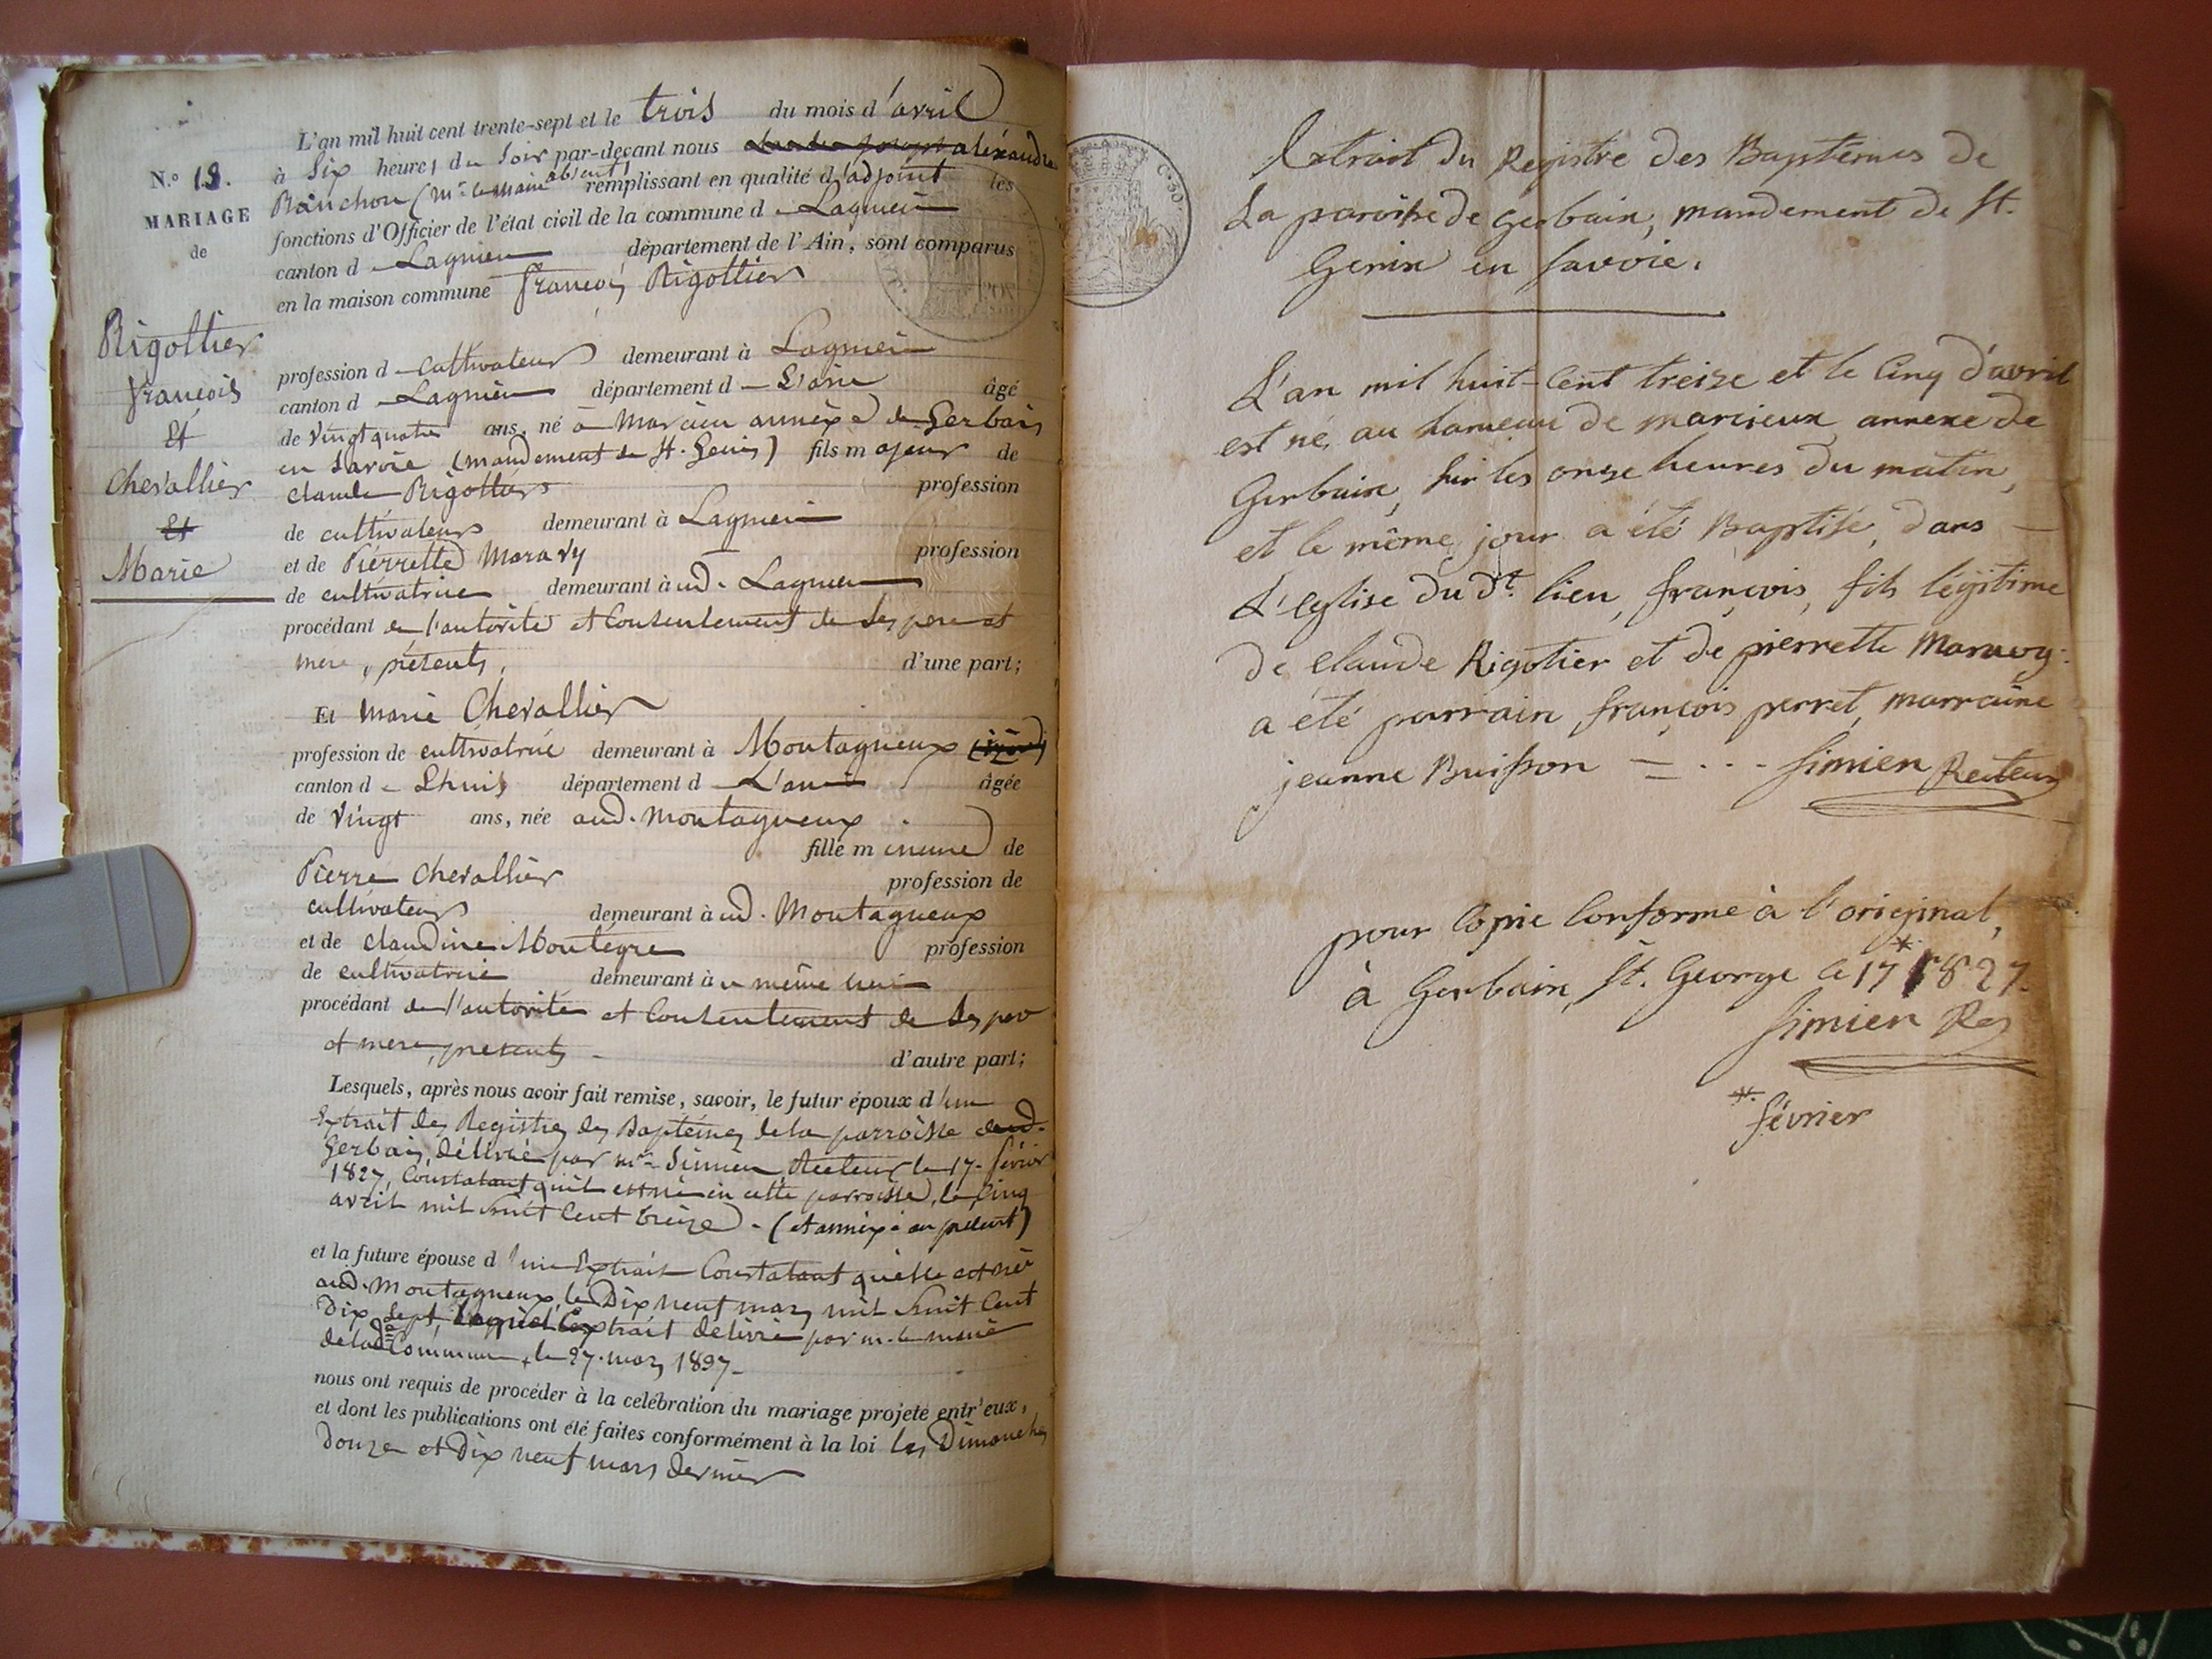 N.o 18.
MARIAGE
de
Rigottier
françois
Et
Chevallier
Et
Marie
L'an mil huit cent trente-sept et le trois du mois d'avril
à Six heures du Soir par-devant nous alexandre
(Mr. le Maire absent) remplissant en qualité d'adjoint les
fonctions d'Officier de l'état civil de la commune d Lagnieu
canton d Lagnieu département de l'Ain, sont comparus
en la maison commune françois Rigottier
profession d cultivateur demeurant à Lagnieu
canton d Lagnieu département d L'ain âgé
de Vingt quatre ans, né à Marcieu annèxe de Gerbaix
en Savoie (mandement de St. Genix) fils majeur de
claude Rigottier profession
de cultivateur demeurant à Lagnieu
et de Pierrette profession
de cultivatrice demeurant à ud. Lagnieu
procédant de l'autorité et Consentement de Ses pere et
mere, présents, d'une part;
Et Marie Chevallier
profession de cultivatrice demeurant à Montagneux
canton d Lhuis département d L'ain âgée
de Vingt ans, née aud. Montagneux
fille mineure de
Pierre Chevallier profession de
cultivateur demeurant à ud. Montagneux
et de claudine Montègre profession
de cultivatrice demeurant à u même lieu
procédant de l'autorité et Consentement de Ses pere
et mere, présents d'autre part;
Lesquels, après nous avoir fait remise, savoir, le futur époux d'un
Extrait des Registres des Baptêmes de la parroisse dud.
Gerbaix, délivré par mr. Simien Recteur le 17. février
1827, Constatant qu'il est né en cette parroisse, le Cinq
avril mil huit Cent treize. (et annéxé au présent)
et la future épouse d'un Extrait Constatant qu'elle est née
aud. Montagneux, le Dix neuf mars mil huit Cent
Dix Sept, Lequel Extrait délivré par m. le maire
de lad. Commune, le 27. mars 1837.
nous ont requis de procéder à la celébration du mariage projeté entr'eux,
et dont les publications ont été faites conformément à la loi les Dimanches
Douze et Dix neuf mars dernier
Extrait du Registre des Baptêmes de
La paroisse de gerbaix, mandement de St.
Genix en Savoie.
L'an mil huit-Cent treize et le Cinq d'avril
est né, au hameau de marcieux annexe de
Gerbaix, sur les onze heures du matin,
et le même jour a été Baptisé, dans
L'Eglise du dt. lieu, françois, fils légitime
de Claude Rigotier et de pierrette
a été parrain, françois perret, marraine
jeanne Buisson Simien Recteur
pour Copie Conforme à l'original,
à Gerbaix, St. George le 17 * 1827.
Simien Rr
* février